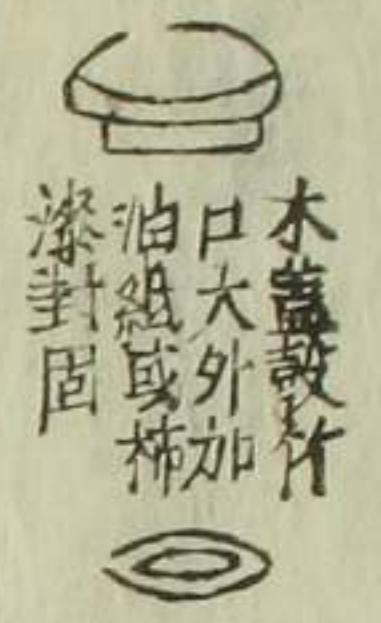 木蓋設
口大外加
油紙或柿
漆封固